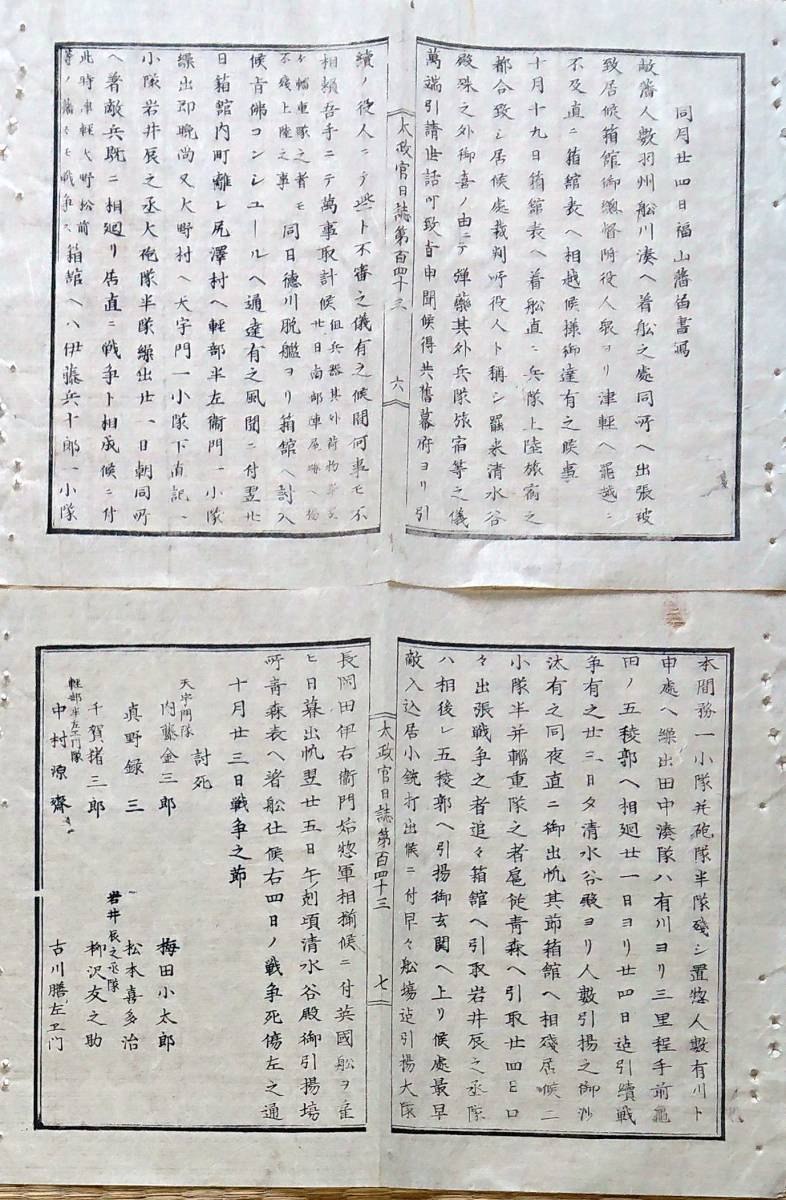 同月廿四日福山藩届書寫
敝藩人數羽州船川湊ヘ着船之處同所ヘ出張被
致居候箱館御總督附役人衆ヨリ津輕ヘ罷越ニ
不及直ニ箱館表ヘ相越候樣御達有之候事
十月十九日箱館表ヘ着船直ニ兵隊上陸旅宿之
都合致シ居候處裁判所役人ト稱シ羅米清水谷
殿殊之外御喜ノ由ニテ彈藥其外兵隊旅宿等之儀
萬端引請世話可致旨申聞候得共舊幕府ヨリ引
太政官日誌第百四十三
六
續ノ役人ニテ些ト不審之儀有之候間何事モ不
相頼吾手ニテ萬事取計候
同日德川脱艦ヨリ箱館ヘ討入
候旨佛コンシユールヘ通達有之風聞ニ付翌廿
日箱館内町離レ尻澤村ヘ輕部半左衞門一小隊
繰出即晩尚又大野村ヘ天宇門一小隊下直記一
小隊岩井辰之丞大砲隊半隊繰出廿一日朝同所
ヘ着敵兵既ニ相廻リ居直ニ戰爭ト相成候ニ付
此時津輕大野松前
等ノ藩々モ戰爭ス
箱館ヘハ伊藤兵十郎一小隊
本間務一小隊并砲隊半隊殘シ置惣人數有川ト
申處ヘ繰出田中湊隊ハ有川ヨリ三里程手前龜
田ノ五稜郭ヘ相廻廿一日ヨリ廿四日迠引續戰
爭有之廿三日夕清水谷殿ヨリ人數引揚之御沙
汰有之同夜直ニ御出帆其節箱館ヘ相殘居候二
小隊半并輜重隊之者扈從靑森ヘ引取廿四日口
々出張戰爭之者追々箱館ヘ引取岩井辰之丞隊
ハ相後レ五稜郭ヘ引揚御玄關ヘ上リ候處最早
敵入込居小銃打出候ニ付早々船塲迠引揚大隊
太政官日誌第百四十三
七
長岡田伊右衞門始惣軍相揃候ニ付英國船ヲ雇
ヒ日暮出帆翌廿五日午刻頃清水谷殿御引揚塲
所靑森表ヘ着船仕候右四日ノ戰爭死傷左之通
十月廿三日戰爭之節
討死
天宇門隊
内藤金三郎
梅田小太郎
眞野錄三
松本喜多治
岩井辰之丞隊
千賀猪三郎
柳沢友之助
輕部半左エ門隊
中村源齋
古川膳左エ門